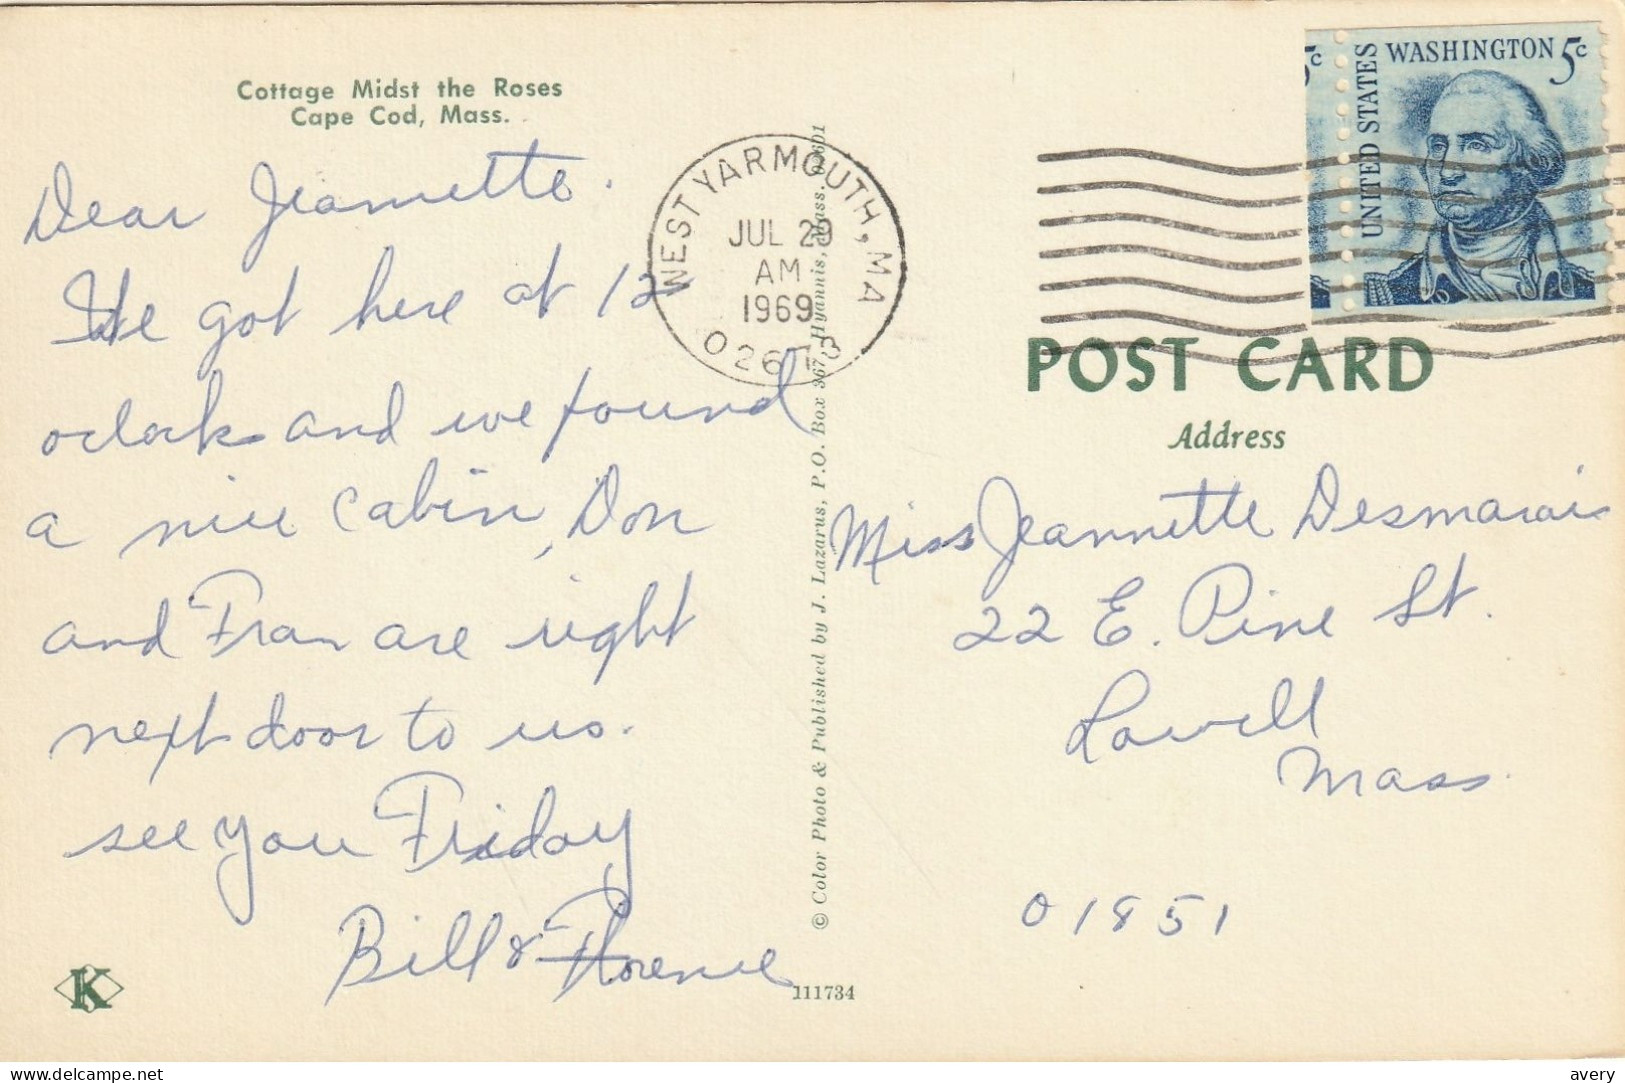 Cottage Midst the Roses
Cape Cod, Mass.
Dear Jeannette.
We got here at 12
oclock and we found
a nice cabin, Don
and Fran are right
next door to us.
see you Friday
Bill & Florence
K
WEST YARMOUTH, MA
JUL 29
AM
1969
02673
© Color Photo & Published by J. Lazarus, P.O. Box 367, Hyannis, Mass. 02601
111734
5c
UNITED STATES
WASHINGTON 5c
POST CARD
Address
Miss Jeannette Desmarais
22 E. Pine St.
Lowell
Mass.
01851
delcampe.net
avery